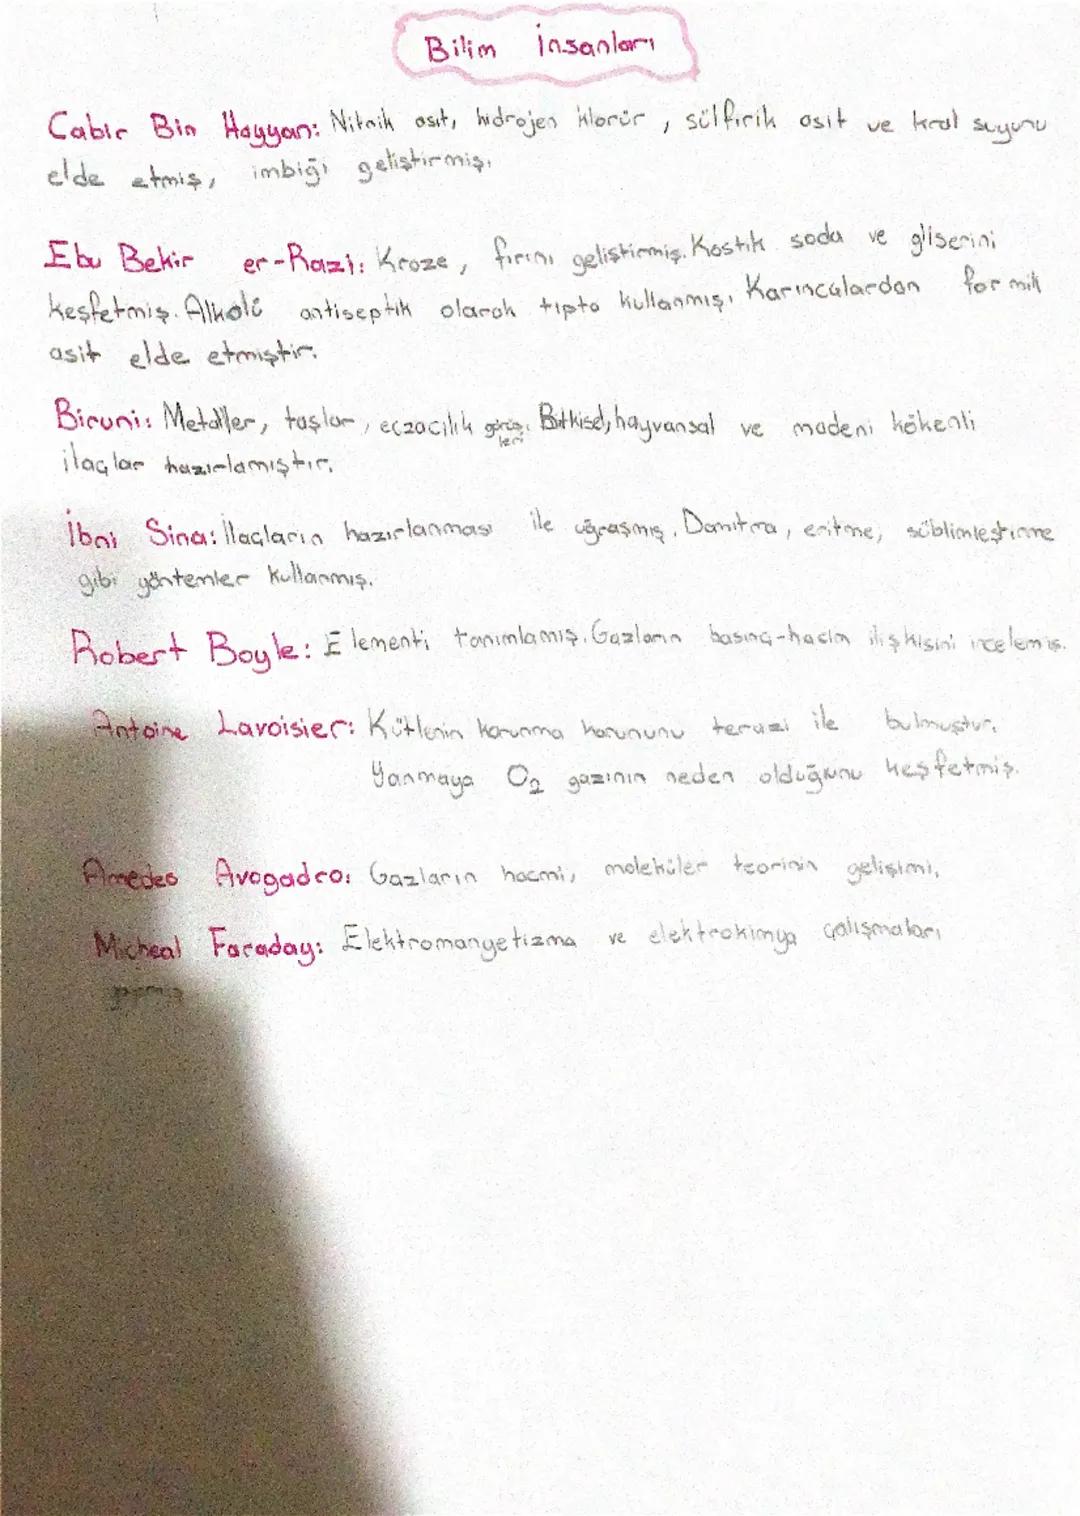 Bilim İnsanları
Cabir Bin Hayyan: Nitrik asit, hidrojen klorür, sülfirik asit ve kral suyunu
elde etmiş, imbiği geliştirmiş.
Ebu Bekir er-Razi: Kroze, fırını geliştirmiş. Kostik soda ve gliserini
keşfetmiş. Alkolü antiseptik olarak tıpta kullanmış, Karıncalardan formik
asit elde etmiştir.
Biruni: Metaller, taşlar, eczacılık görüşleri. Bitkisel, hayvansal ve madeni kökenli
ilaçlar hazırlamıştır.
İbni Sina: İlaçların hazırlanması ile uğraşmış. Damıtma, eritme, süblimleştirme
gibi yöntemler kullanmış.
Robert Boyle: Elementi tanımlamış. Gazların basınç-hacim ilişkisini incelemiş.
Antoine Lavoisier: Kütlenin korunma kanununu terazi ile bulmuştur.
Yanmaya O₂ gazının neden olduğunu keşfetmiş.
Amedes Avogadro: Gazların hacmi, moleküler teorinin gelişimi.
Micheal Faraday: Elektromanyetizma ve elektrokimya çalışmaları